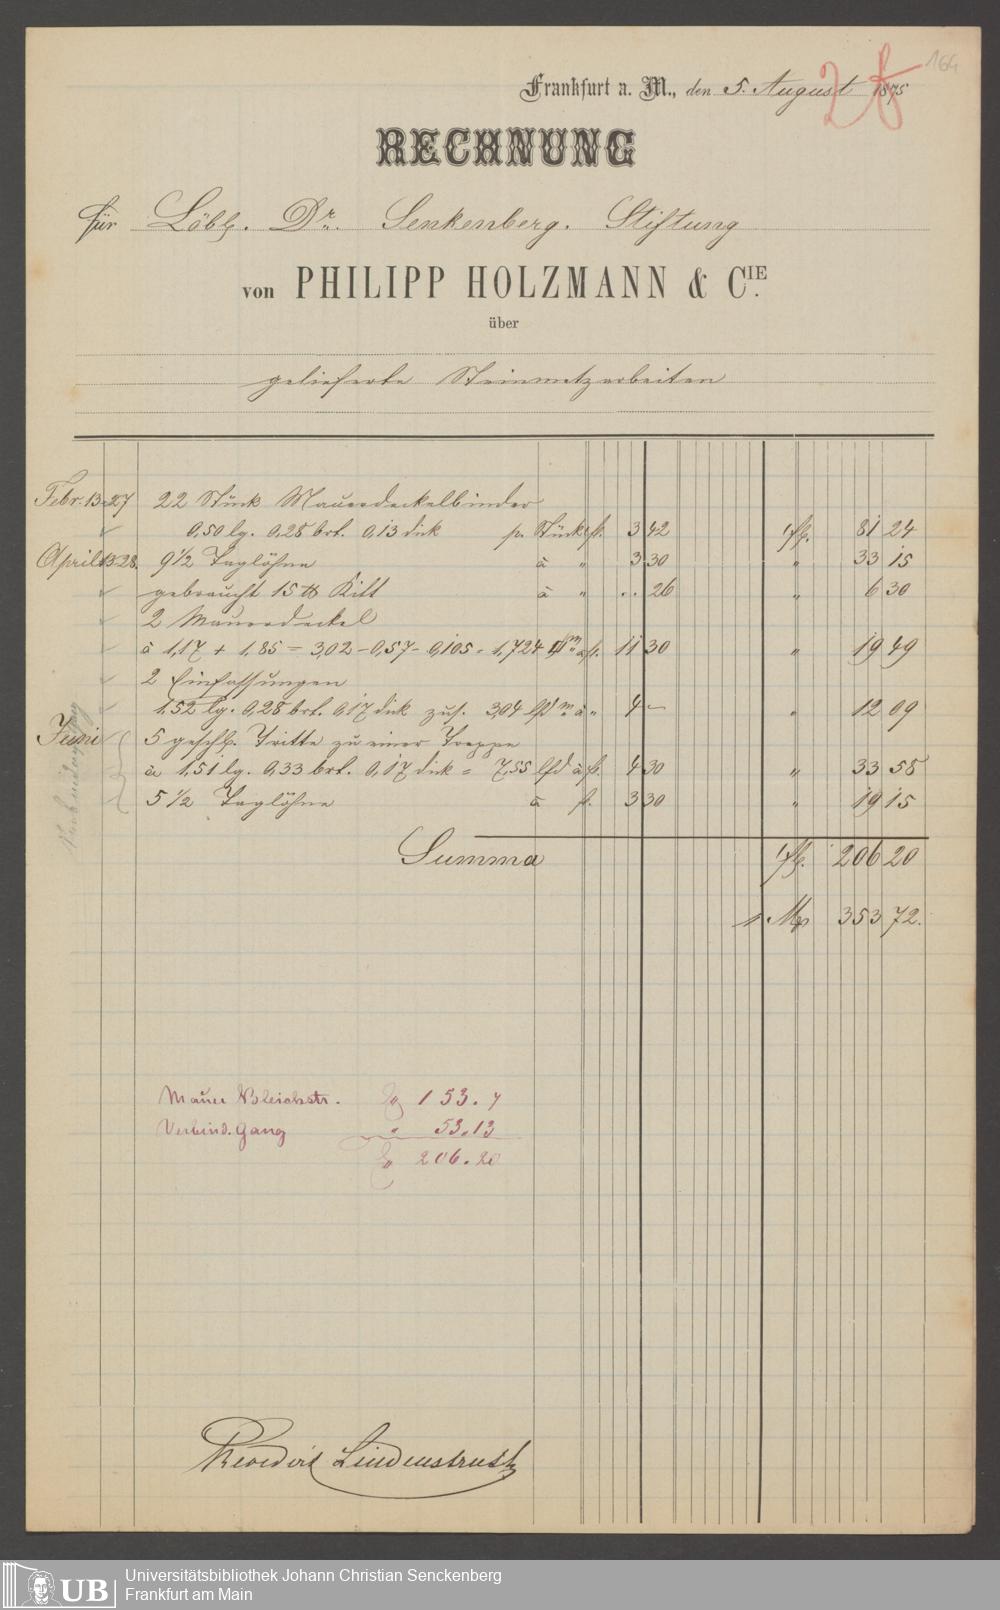 164
28
Frankfurt a. M., den 5. August 1875
RECHNUNG
für Löbl. Dr. Senkenberg. Stiftung
von PHILIPP HOLZMANN & CIE.
über
gelieferte Steinmetzarbeiten
Febr. 13-27 22 Stück Mauerdeckelbinder
0,50 lg. 0,28 brt. 0,13 dick p. Stück fl. 3 42 fl. 81 24
April 13-28. 9 1/2 Taglöhne à " 3 30 " 33 15
gebraucht 15 ℔ Kitt à " .. 26 " 6 30
2 Mauerdeckel
à 1,17 + 1,85 = 3,02 - 0,57 - 0,105 = 1,724 □m à fl. 11 30 " 19 49
2 Einfassungen
1,52 lg. 0,28 brt. 0,17 dick zus. 3,04 lfd m à " 4 — " 12 09
Juni 5 geschl. Tritte zu einer Treppe
à 1,51 lg. 0,33 brt. 0,17 dick = 7,55 lfd à fl. 4 30 " 33 58
5 1/2 Taglöhne à fl. 3 30 " 19 15
Summa fl. 206 20
M 353 72.
Mauer Bleichstr. fl 153. 7
Verbind. Gang " 53. 13
fl 206. 20
Lindenstruth
UB Universitätsbibliothek Johann Christian Senckenberg
Frankfurt am Main